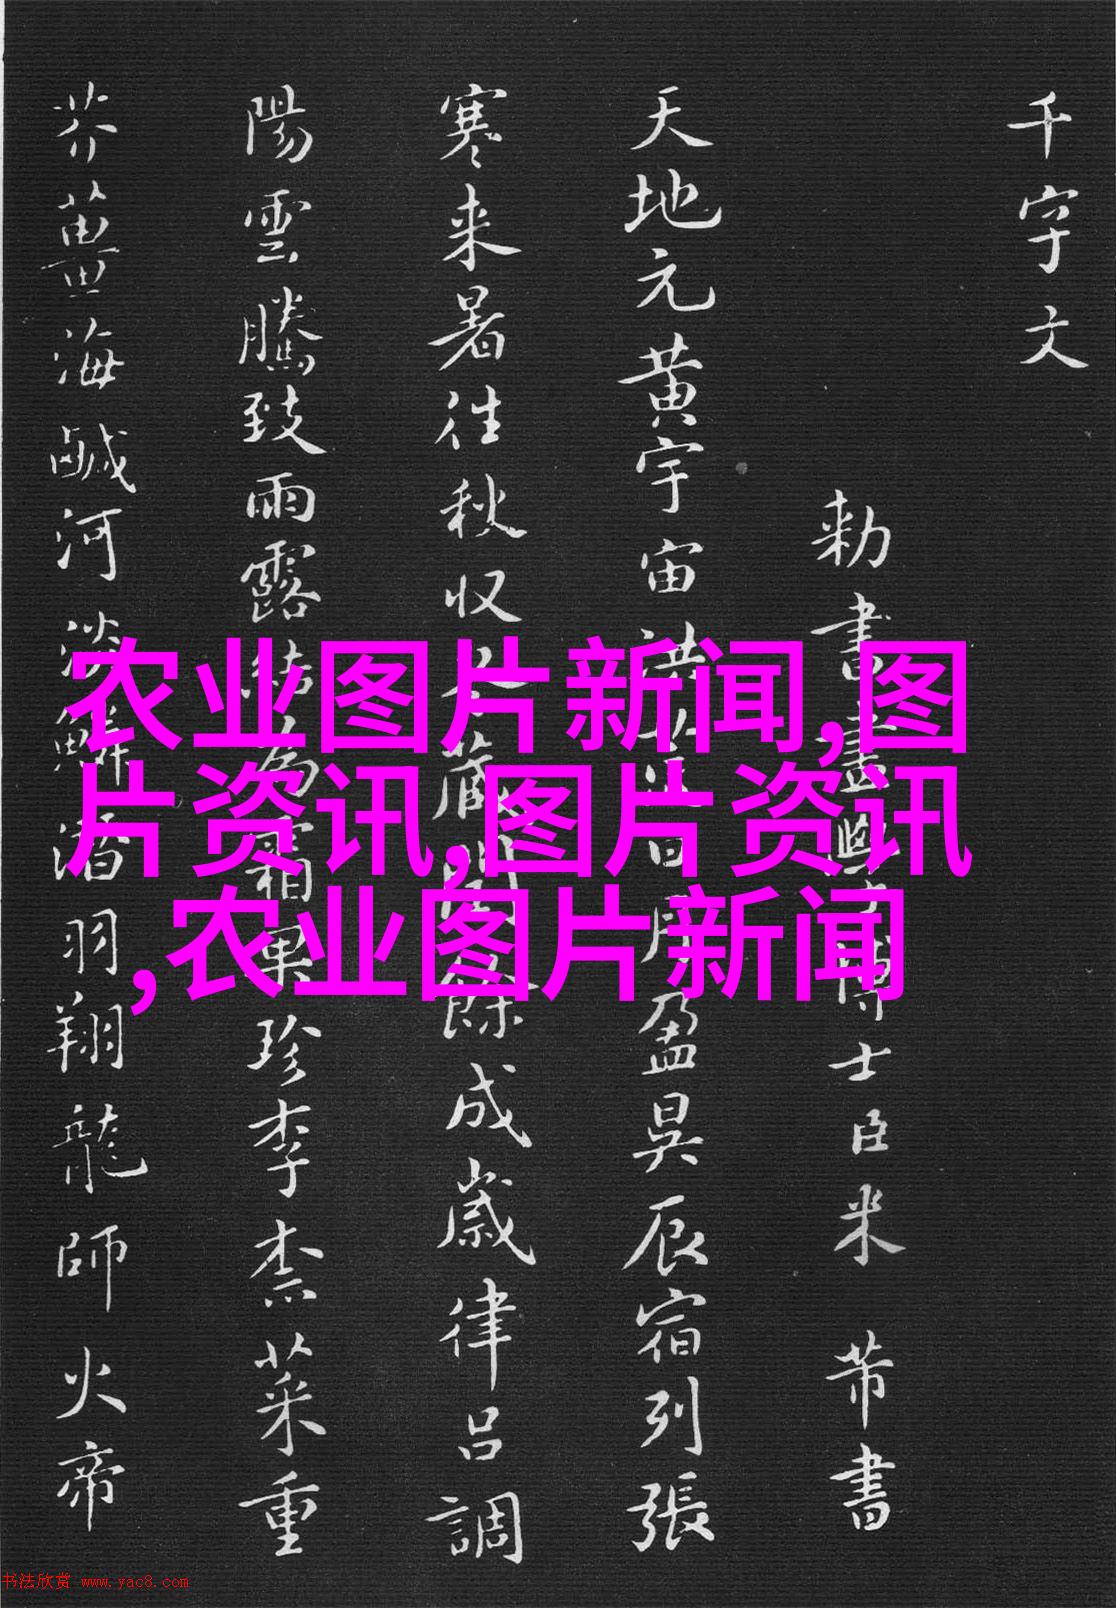 千字文
勅書畫學博士臣米芾書
天地元黄宇宙洪荒日月盈昃辰宿列張
寒来暑往秋収冬藏閏餘成嵗律吕調
陽雲騰致雨露結為霜果珍李柰菜重
芥薑海鹹河淡鱗潜羽翔龍師火帝
农业图片新闻,图
片资讯,图片资讯
,农业图片新闻
书法欣赏 www.yac8.com